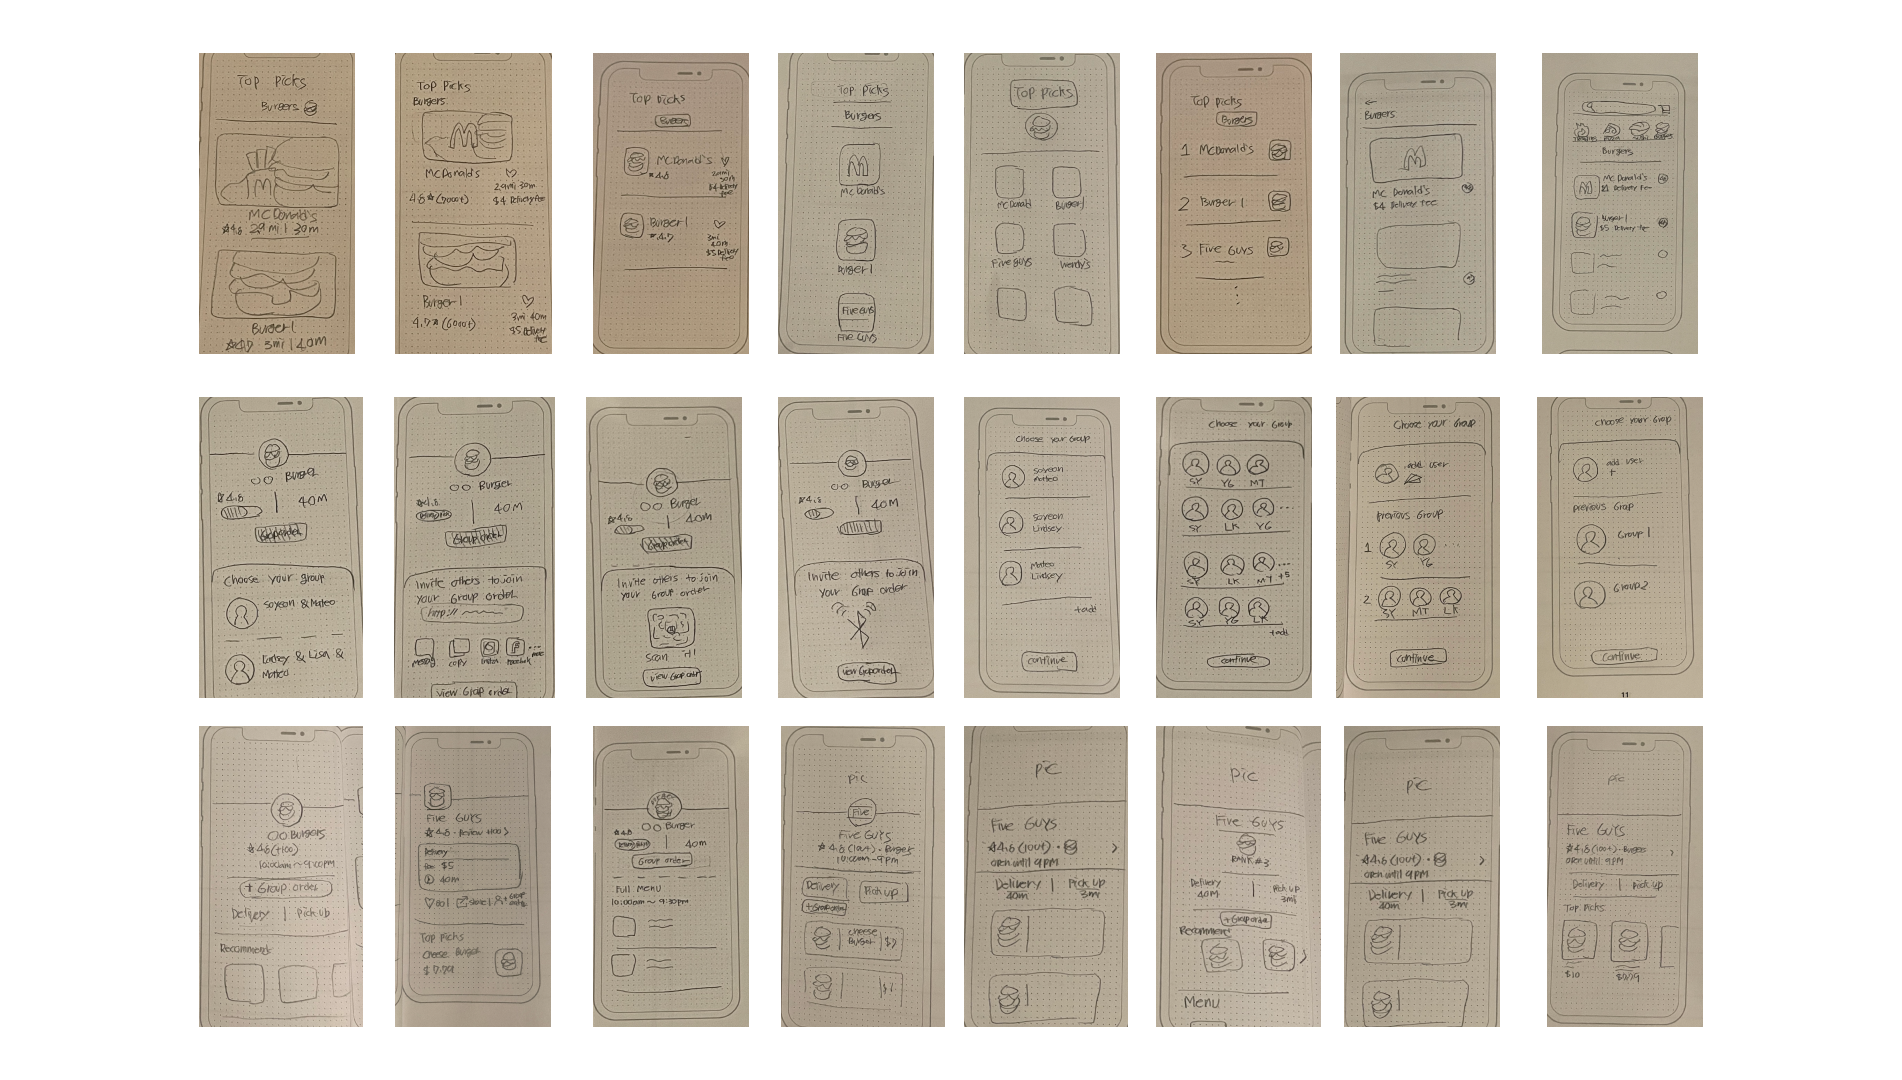 Top Picks
Burgers
McDonald's
☆4.6 2.9 mi | 30m
Burger 1
☆4.7 3mi | 40m
Top Picks
Burgers
M
McDonald's
4.6☆(7000+)
2.9mi 30m
$4 Delivery fee
Burger 1
4.7☆(6000+)
3mi 40m
$5 Delivery
fee
Top Picks
Burgers
McDonald's
☆4.6
2.9mi
30m
$4 Delivery
fee
Burger 1
☆4.7
3mi
40m
$5 Delivery
fee
Top Picks
Burgers
M
Mc Donald's
Burger 1
Five Guys
Five Guys
Top Picks
McDonald
Burger 1
Five guys
Wendy's
Top Picks
Burgers
1 McDonald's
2 Burger 1
3 Five Guys
←
Burgers
M
Mc Donald's
$4 Delivery fee
Burgers
M
Mc Donald's
$4 Delivery fee
Burger 1
$5 Delivery fee
OO Burger
☆4.6
40M
Group order
Choose your group
Soyeon & Mateo
Lindsey & Lisa &
Matteo
OO Burger
☆4.6
40M
Group order
Invite others to join
your Group order
http://
copy
more
View Group order
OO Burger
☆4.6
40m
Group order
Invite others to join
your Group order
Scan it!
View Group order
OO Burger
☆4.6
40M
Invite others to join
your Group order
View Group order
Choose your Group
Soyeon
Matteo
Soyeon
Lindsey
Mateo
Lindsey
+add
continue
Choose your Group
SY YG MT
SY LK YG ...
SY LK MT +5
SY YG LK
+add
continue
Choose your Group
add user
previous Group
1
SY YG
2
SY MT LK
continue
choose your Group
add user
+
previous Group
Group 1
Group 2
Continue
11
OO Burgers
☆4.6(+100)
10:00am ~ 9:00PM
+ Group order
Delivery | Pick up
Recommend
Five Guys
☆4.6 · Review +100 >
Delivery
fee $5
40m
Top Picks
Cheese Burger
$7.79
OO Burger
☆4.6
40m
Group order
Full Menu
10:00am ~ 9:30pm
Pic
Five
Five Guys
☆4.6 (100+) · Burger
10:00am-9pm
Delivery
Pick up
+Group order
cheese
Burger
$7
Pic
Five Guys
☆4.6 (100+) · >
open until 9PM
Delivery | Pick up
40m 3mi
Pic
Five Guys
RANK #3
Delivery
40M
Pick up
3mi
+Group order
Recommend
Menu
Pic
Five Guys
☆4.6 (100+) · >
open until 9pm
Delivery | Pick up
40m 3mi
Pic
Five Guys
☆4.6 (100+) - Burgers >
open until 9PM
Delivery | Pick up
Top Picks
$10 $7.79